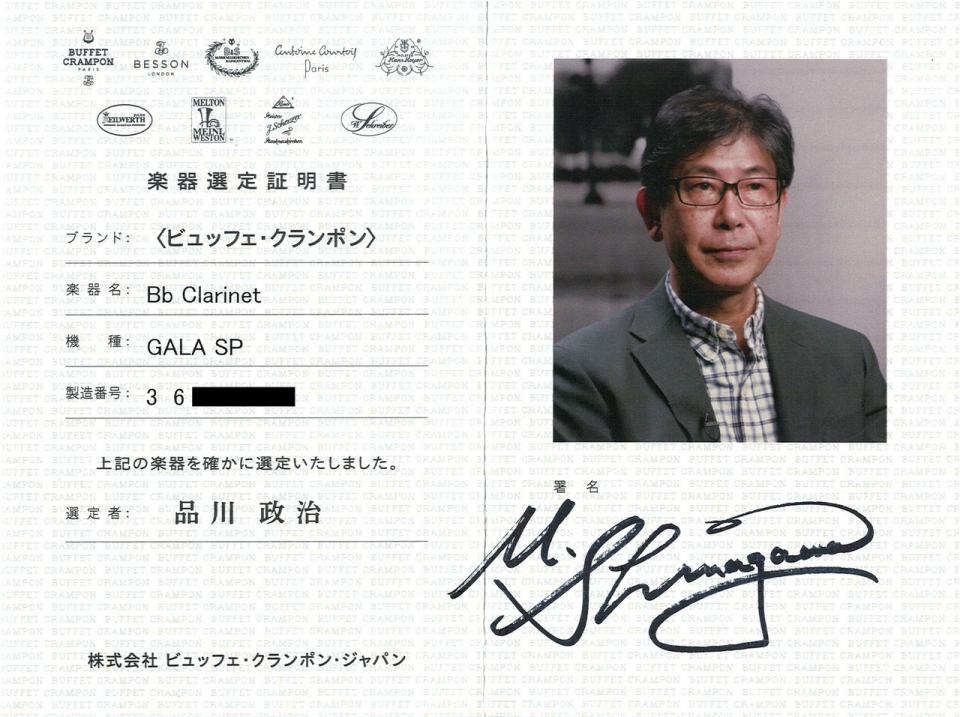 BUFFET
CRAMPON
PARIS
BESSON
LONDON
B&S
Antoine Courtois
Paris
Hans Hoyer
KEILWERTH
MELTON
MEINL
WESTON
J. Scherzer
W. Schreiber
楽器選定証明書
ブランド: 〈ビュッフェ・クランポン〉
楽器名: Bb Clarinet
機 種: GALA SP
製造番号: 3 6
上記の楽器を確かに選定いたしました。
選定者: 品川 政治
株式会社 ビュッフェ・クランポン・ジャパン
署 名
M. Shinagawa
BUFFET CRAMPON